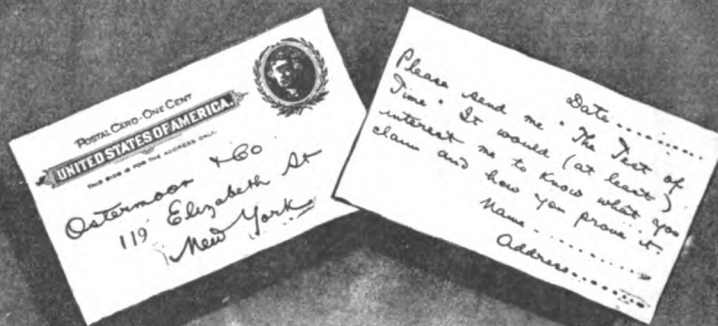 POSTAL CARD-ONE CENT
UNITED STATES OF AMERICA.
THIS SIDE IS FOR THE ADDRESS ONLY.
Ostermoor & Co
119 Elizabeth St
New York
Date............
Please send me "The Test of
Time". It would (at least)
interest me to know what you
claim and how you prove it
Name............
Address............